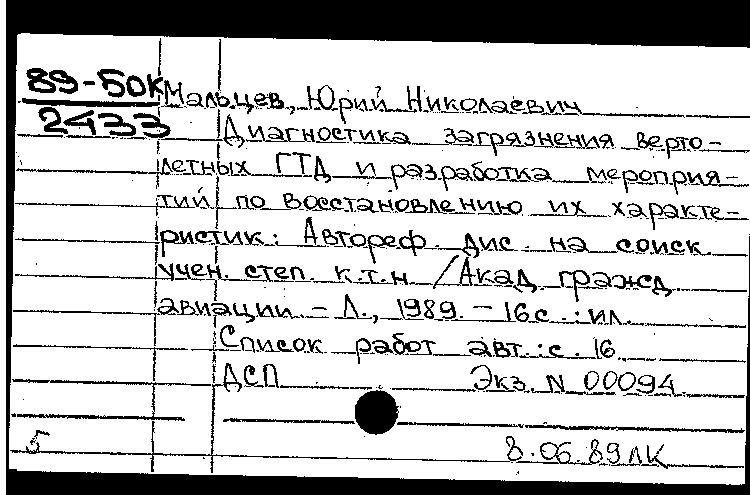 89-БОК
2433
Мальцев, Юрий Николаевич
Диагностика загрязнения верто-
летных ГТД и разработка мероприя-
тий по восстановлению их характе-
ристик: Автореф. дис. на соиск.
учен. степ. к.т.н. /Акад. гражд.
авиации. - Л., 1989. - 16с.: ил.
Список работ авт.: с. 16.
ДСП Экз. N 00094.
5 8.06.89 ЛК